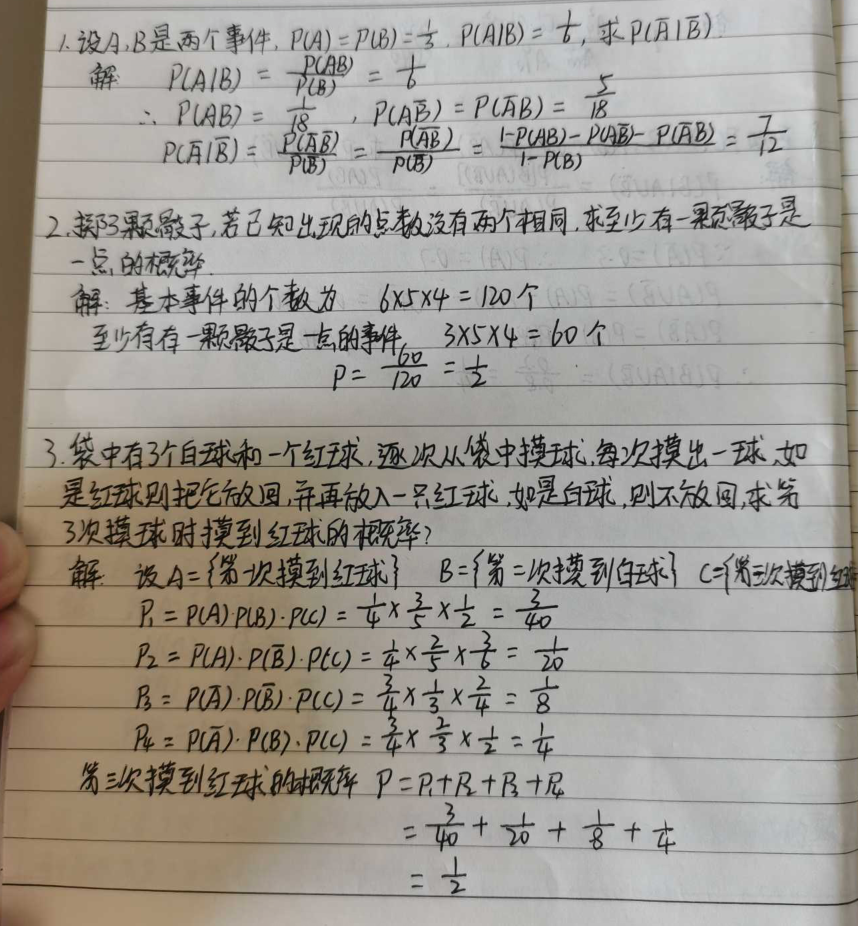 1. 设A,B是两个事件, P(A)=P(B)=1/3, P(A|B)=1/6, 求P(Ā|B̄)
解: P(A|B) = P(AB)/P(B) = 1/6
∴ P(AB) = 1/18 , P(AB̄) = P(ĀB) = 5/18
P(Ā|B̄) = P(ĀB̄)/P(B̄) = P(ĀB̄)/P(B̄) = (1-P(AB)-P(AB̄)-P(ĀB))/(1-P(B)) = 7/12
2. 掷3颗骰子,若已知出现的点数没有两个相同,求至少有一颗骰子是
一点的概率.
解: 基本事件的个数为 6×5×4=120个
至少有有一颗骰子是一点的事件 3×5×4=60个
P = 60/120 = 1/2
3. 袋中有3个白球和一个红球,逐次从袋中摸球,每次摸出一球,如
是红球则把它放回,并再放入一只红球,如是白球,则不放回,求第
3次摸球时摸到红球的概率?
解: 设A={第一次摸到红球} B={第二次摸到白球} C={第三次摸到红球
P₁ = P(A)·P(B)·P(C) = 1/4 × 3/5 × 1/2 = 3/40
P₂ = P(A)·P(B̄)·P(C) = 1/4 × 2/5 × 3/6 = 1/20
P₃ = P(Ā)·P(B̄)·P(C) = 3/4 × 1/3 × 2/4 = 1/8
P₄ = P(Ā)·P(B)·P(C) = 3/4 × 2/3 × 1/2 = 1/4
第三次摸到红球的概率 P = P₁+P₂+P₃+P₄
= 3/40 + 1/20 + 1/8 + 1/4
= 1/2